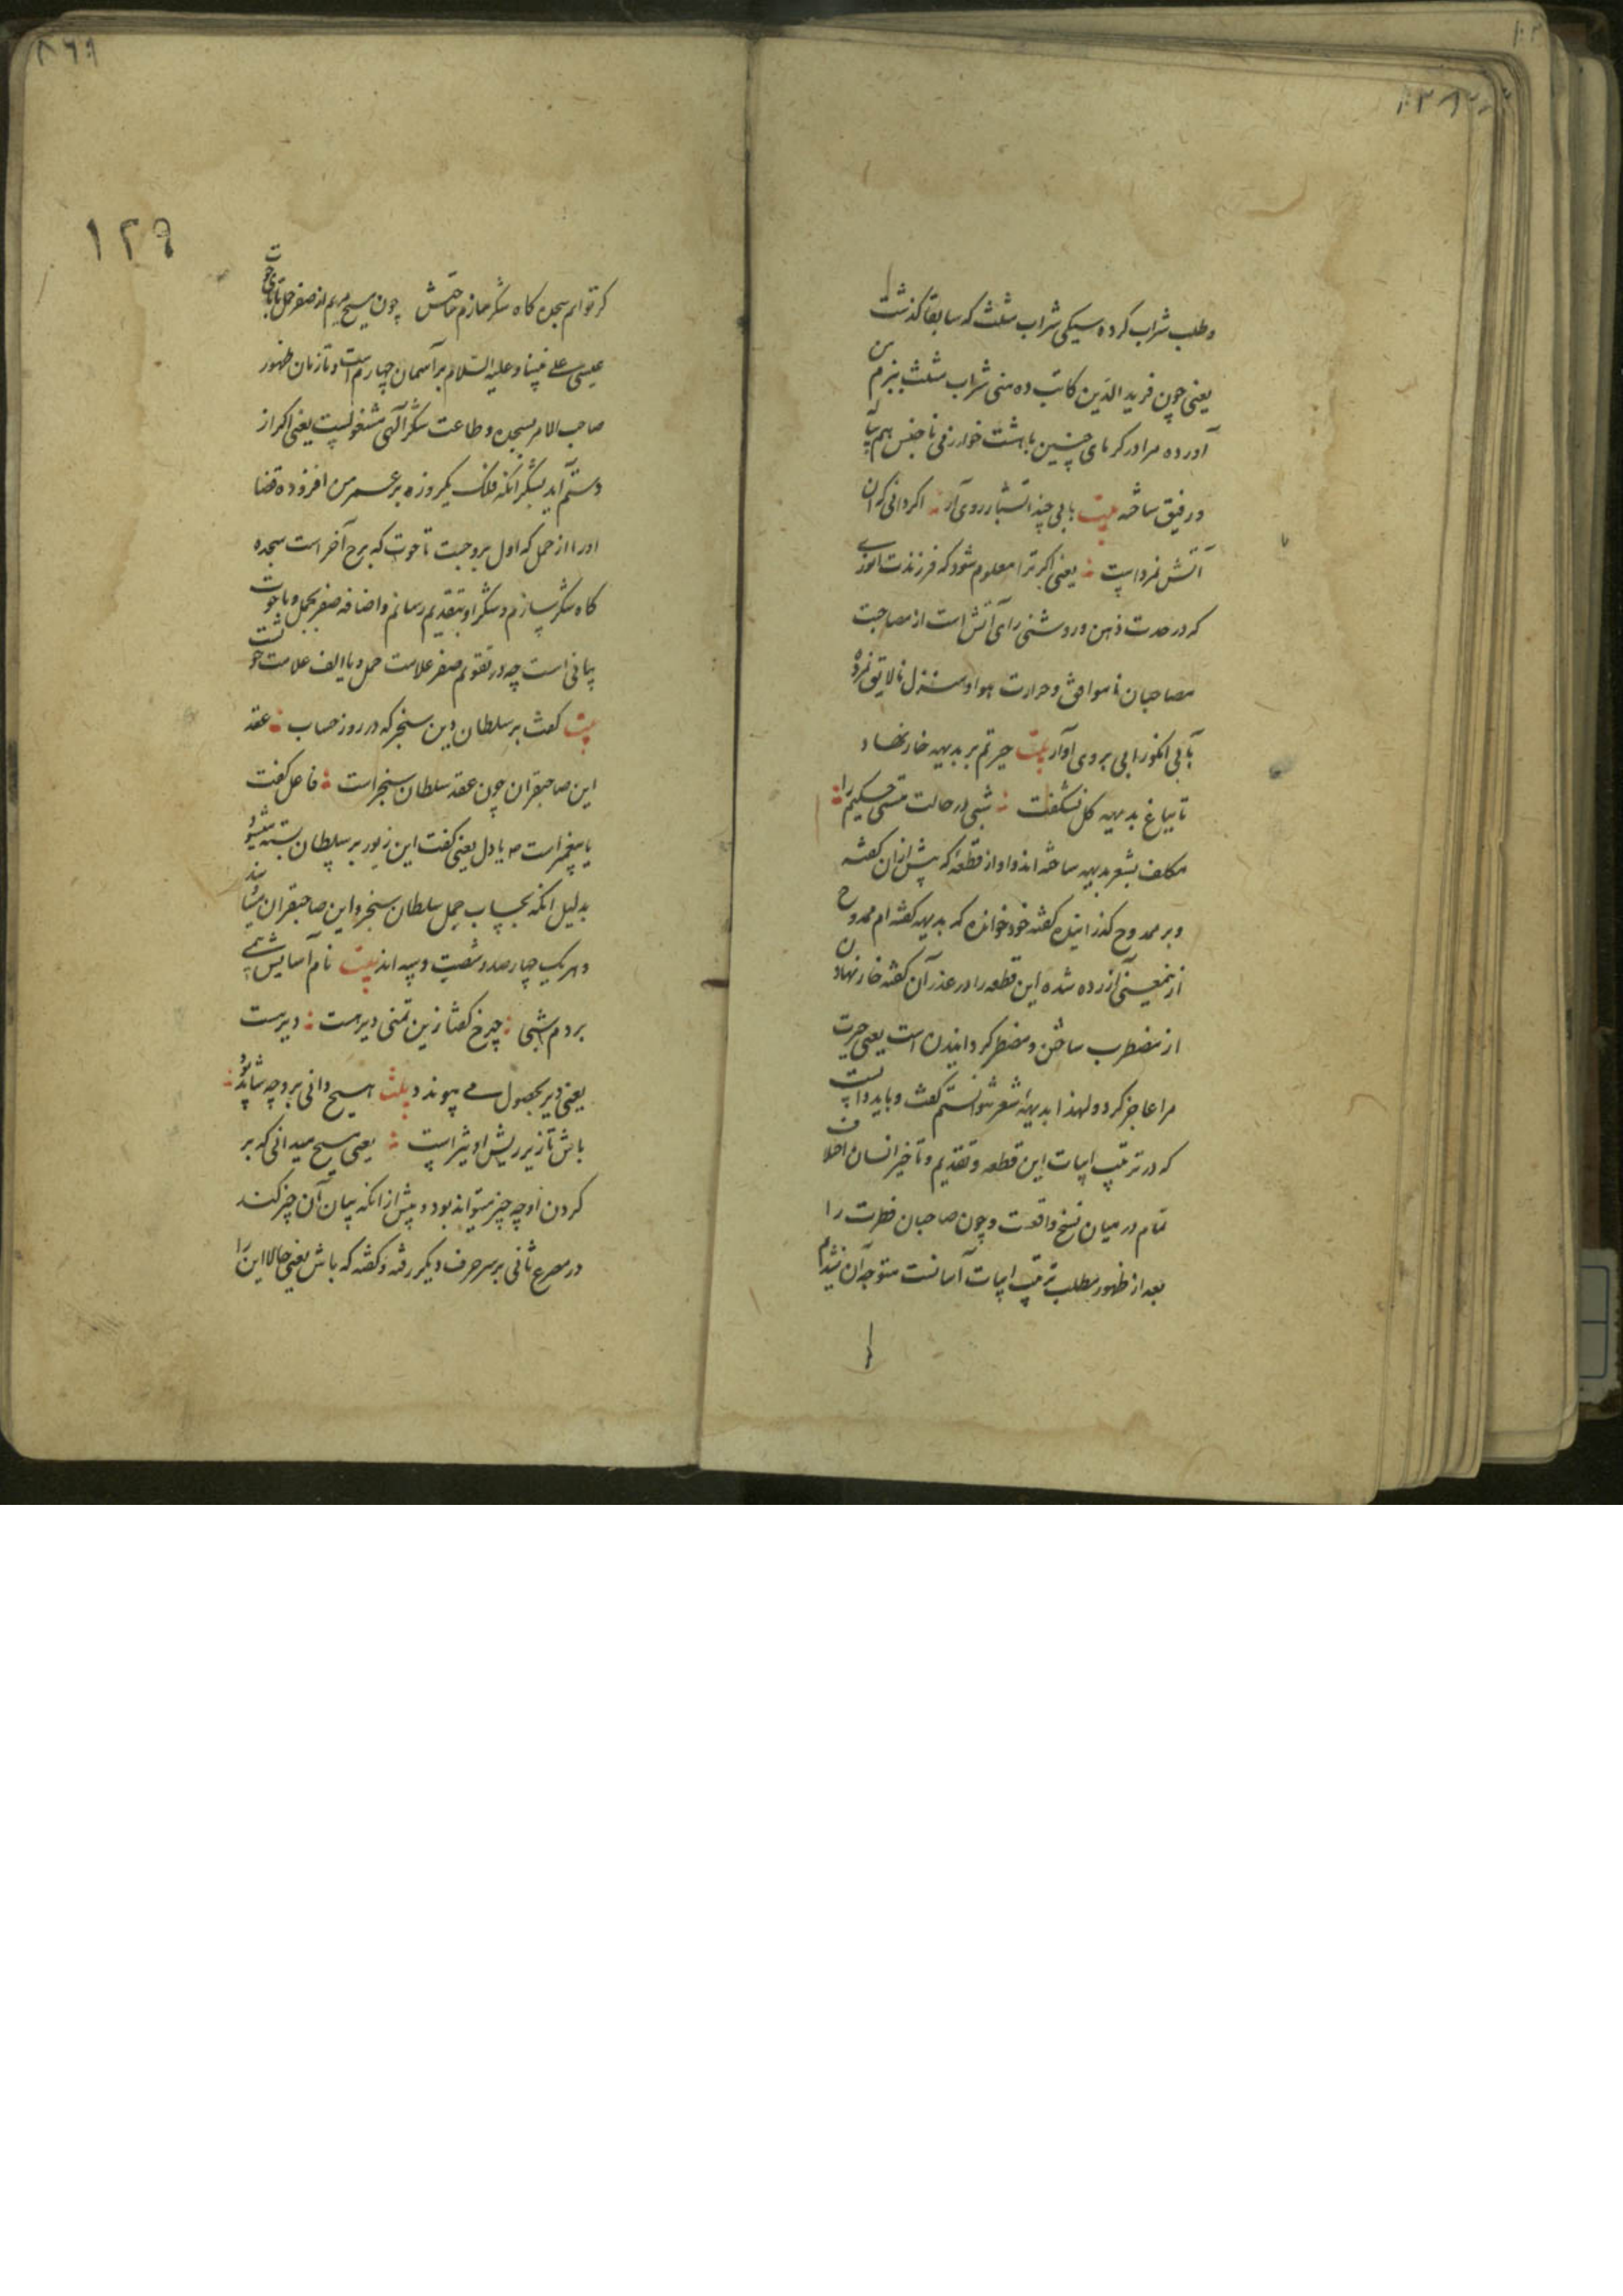 و طلب شراب کرده سیکی شراب مثلث که سابقا گذشت
یعنی چون فرید الدین کاتب ده منی شراب مثلث ببزم من
آورده مرا در گرمای چنین با هشت خوارزمی ناجنس هم پیاله
و رفیق ساخته بیت بابی چند آتشبار روی آر اگر دانی که آن
آتش نمرداست یعنی اگر ترا معلوم شود که فرزندت انوری
که در حدت ذهن و روشنی رای آتش است از مصاحبت
مصاحبان ناموافق و حرارت هوا و منزل نالایق نمرده
بآبی انگور آبی بروی او آر بیت حیرتم بر بدیهه خار نهاد
تا بباغ بدیهه گل نشکفت شبی در حالت مستی حکیم را
مکلف بشعر بدیهه ساخته اند و او از قطعه که پیش ازان گفته
و بر ممدوح گذرانیده گفته خود خوانده که بدیهه گفته ام ممدوح
ازینمعنی آزرده شده این قطعه را در عذر آن گفته خار نهادن
از مضطرب ساختن و مضطر گردانیدن است یعنی حیرت
مرا عاجز کرد و لهذا بدیهه شعر نتوانستم گفت و باید دانست
که در ترتیب ابیات این قطعه و تقدیم و تاخیر انسان اختلاف
تمام در میان نسخ واقعست و چون صاحبان فطرت را
بعد از ظهور مطلب ترتیب ابیات آسانست متوجه آن نشدیم
٨٦٩
١٢٩
گر توانم سجده گاه شکر سازم ساحتش چون مسیح مریم از صفر حمل تا پای حوت
عیسی علی نبینا و علیه السلام بر آسمان چهارم است و تا زمان ظهور
صاحب الامر بسجده و طاعت شکر آلهی مشغولیست یعنی اگر از
دستم آید بشکر انکه فلک یکروزه بر عمر من افزوده قضا
او را از حمل که اول بروجست تا حوت که برج آخر است سجده
گاه شکر سازم و شکر او بتقدیم رسانم و اضافه صفر بحمل و یا حوت
بیانی است چه در تقویم صفر علامت حمل و یا الف علامت حوتست
بیت گفت بر سلطان دین سنجر که در روز حساب عقد
این صاحبقران چون عقد سلطان سنجر است فاعل گفت
یا پیغمبر است ص یا دل یعنی گفت این زیور بر سلطان بسته میشود
بدلیل انکه بحساب جمل سلطان سنجر و این صاحبقران
و هر یک چهارصد و شصت و سه اند بیت نام آسایش همی
بردم شبی چرخ گفتا زین تمنی دیرست دیرست
یعنی دیر بحصول می پیوندد بیت هیچ دانی بر چه شاید بود
باش تا زیر ریش او تیز است یعنی هیچ میدانی که بر
گردن او چه چیز میتواند بود و پیش از انکه بیان آن چیز کند
در مصرع ثانی بر سر حرف دیگر رفته و گفته که باش یعنی حالا این را